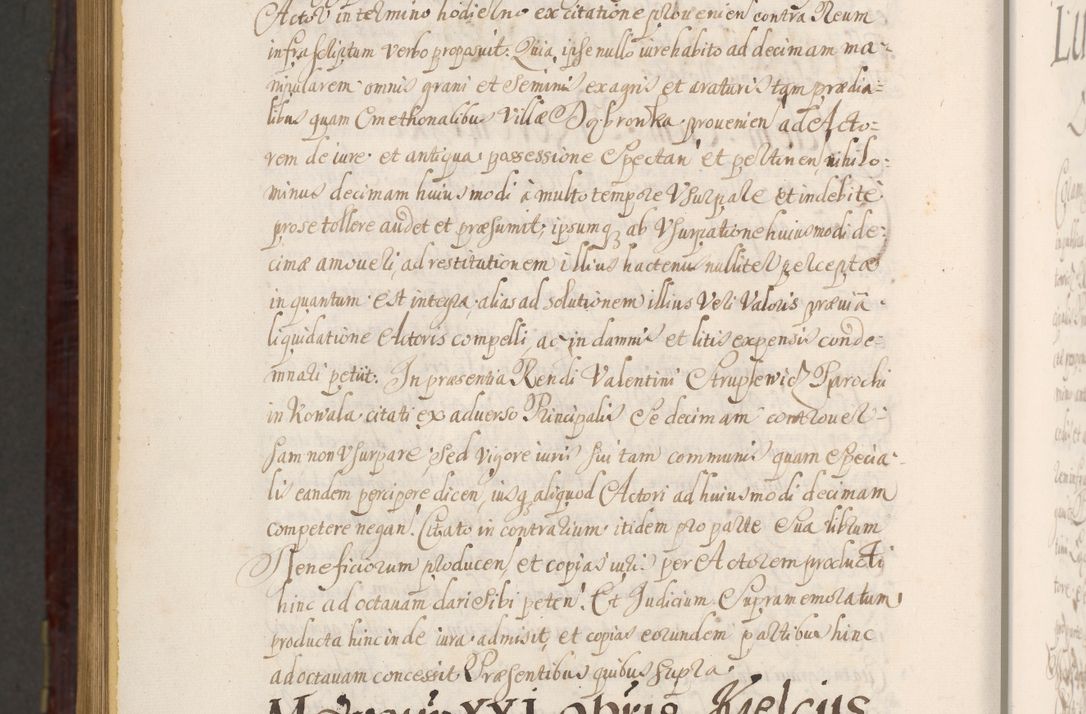 Actor in termino hodierno ex citatione provenien contra Reum
infrascriptum verbo proposuit. Quia ipse nullo iure habito ad decimam ma-
nipularem omnis grani et seminis ex agris et araturis tam prædia-
libus quam Cmethonalibus Villæ Dąbrowka provenien ad Acto-
rem de iure et antiqua possessione Spectan et pertinen, nihilo-
minus decimam huiusmodi à multo tempore Vsurpare et indebitè
pro se tollere audet et præsumit, ipsumq ab Vsurpatione huiusmodi de-
cimæ amoveri, ad restitutionem illius hactenus nulliter perceptæ
in quantum est integra, alias ad solutionem illius Veri Valoris præviâ
liquidatione Actoris compelli, ac in damnis et litis expensis conde-
mnari petiit. In præsentia Rendi Valentini Strupiewic Parochi
in Kowala citati ex adverso Principalis Se decimam controver-
sam non Vsurpare sed vigore iuris sui tam communis quam specia-
lis eandem percipere dicen, iusq aliquod Actori ad huiusmodi decimam
competere negan. Citato in contrarium itidem pro parte Sua librum
Beneficiorum producen, et copias iuris per Actorem producti
hinc ad octavam dari sibi peten. Et Judicium Supramemoratum
producta hinc inde iura admisit, et copias eorundem partibus hinc
ad octavam concessit Præsentibus quibus supra.
XXI 9bris Kielcijs